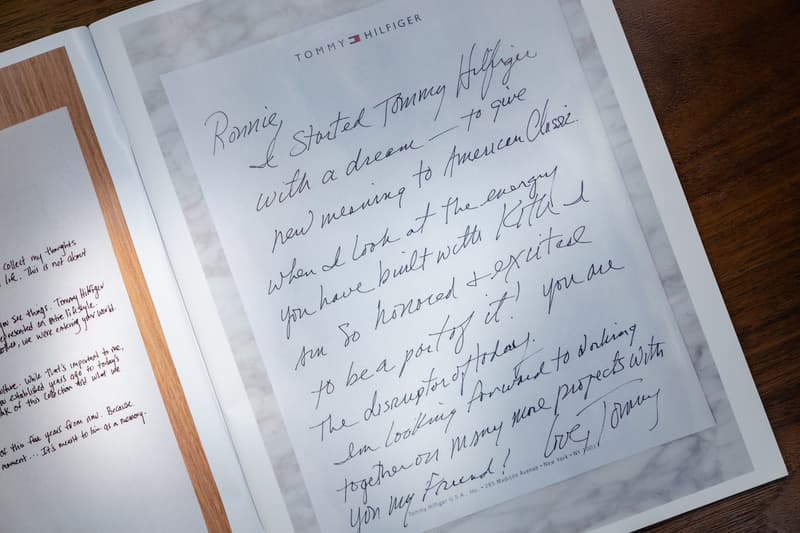 collect my thoughts
life. This is not about
you see things. Tommy Hilfiger
represented an entire lifestyle.
we were entering your world.
While that's important to me,
you established years ago to today's
of this collection and what we
for this five years from now. Because
moment... It's meant to live as a memory.
TOMMY HILFIGER
Ronnie,
I Started Tommy Hilfiger
with a dream — to give
new meaning to American Classic.
when I look at the energy
you have built with KITH I
am so honored & excited
to be a part of it! you are
The disruptor of today.
I'm looking forward to working
together on many more projects with
you my friend! Love, Tommy
Tommy Hilfiger U.S.A., Inc. • 285 Madison Avenue • New York • NY 10017